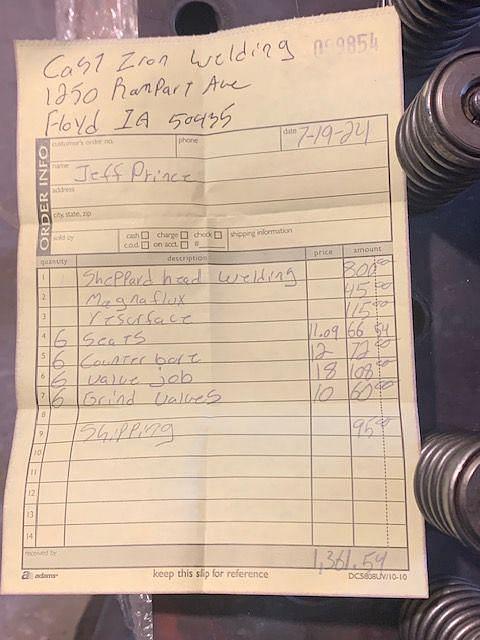 Cast Iron Welding 099854
1250 Rampart Ave
Floyd IA 50435
ORDER INFO
customer's order no. phone date 7-19-24
name Jeff Prince
address
city, state, zip
sold by cash charge check shipping information
c.o.d. on acct. #
quantity description price amount
1 Sheppard head welding 800 00
2 Magnaflux 45 00
3 resurface 115 00
4 6 Seats 11.09 66 54
5 6 Counter bore 12 72 00
6 6 Valve job 18 108 00
7 6 Grind Valves 10 60 00
8
9 Shipping 95 00
10
11
12
13
14
received by 1,361.54
adams keep this slip for reference DC5808UV/10-10